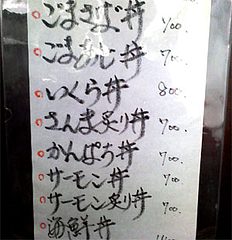 ごまさば丼 700.
ごまあじ丼 700.
いくら丼 800.
さんま炙り丼 700.
かんぱち丼 700.
サーモン丼 700.
サーモン炙り丼 700.
海鮮丼